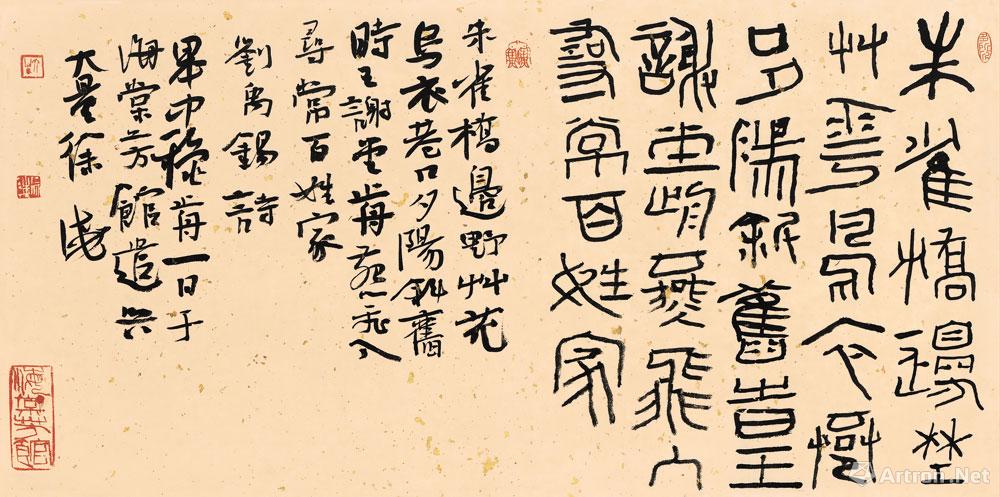 朱雀橋邊埜
艸華烏衣巷
口夕陽斜舊旹王
謝堂前燕飛入
尋常百姓家
朱雀橋邊野艸花
烏衣巷口夕陽斜舊
時王謝堂前燕飛入
尋常百姓家
劉禹錫詩
中穐前一日于
海棠芳館
徐
Artron.Net